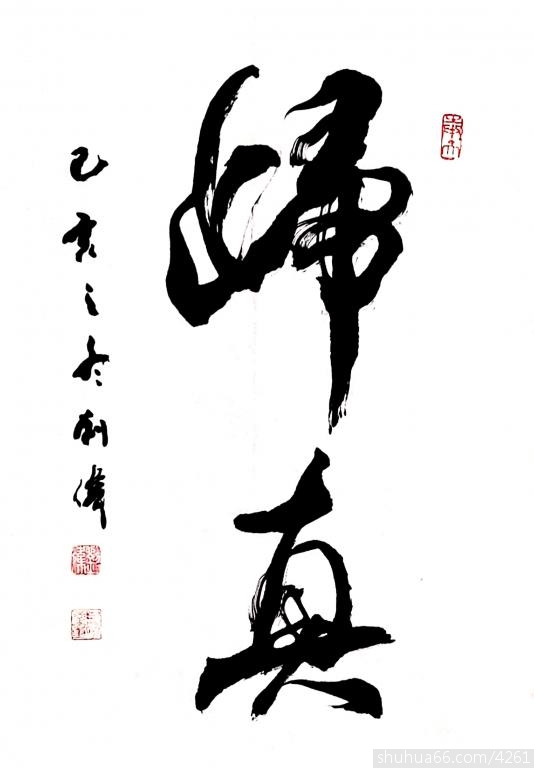 歸真
乙亥之冬劉偉
shuhua66.com/4261